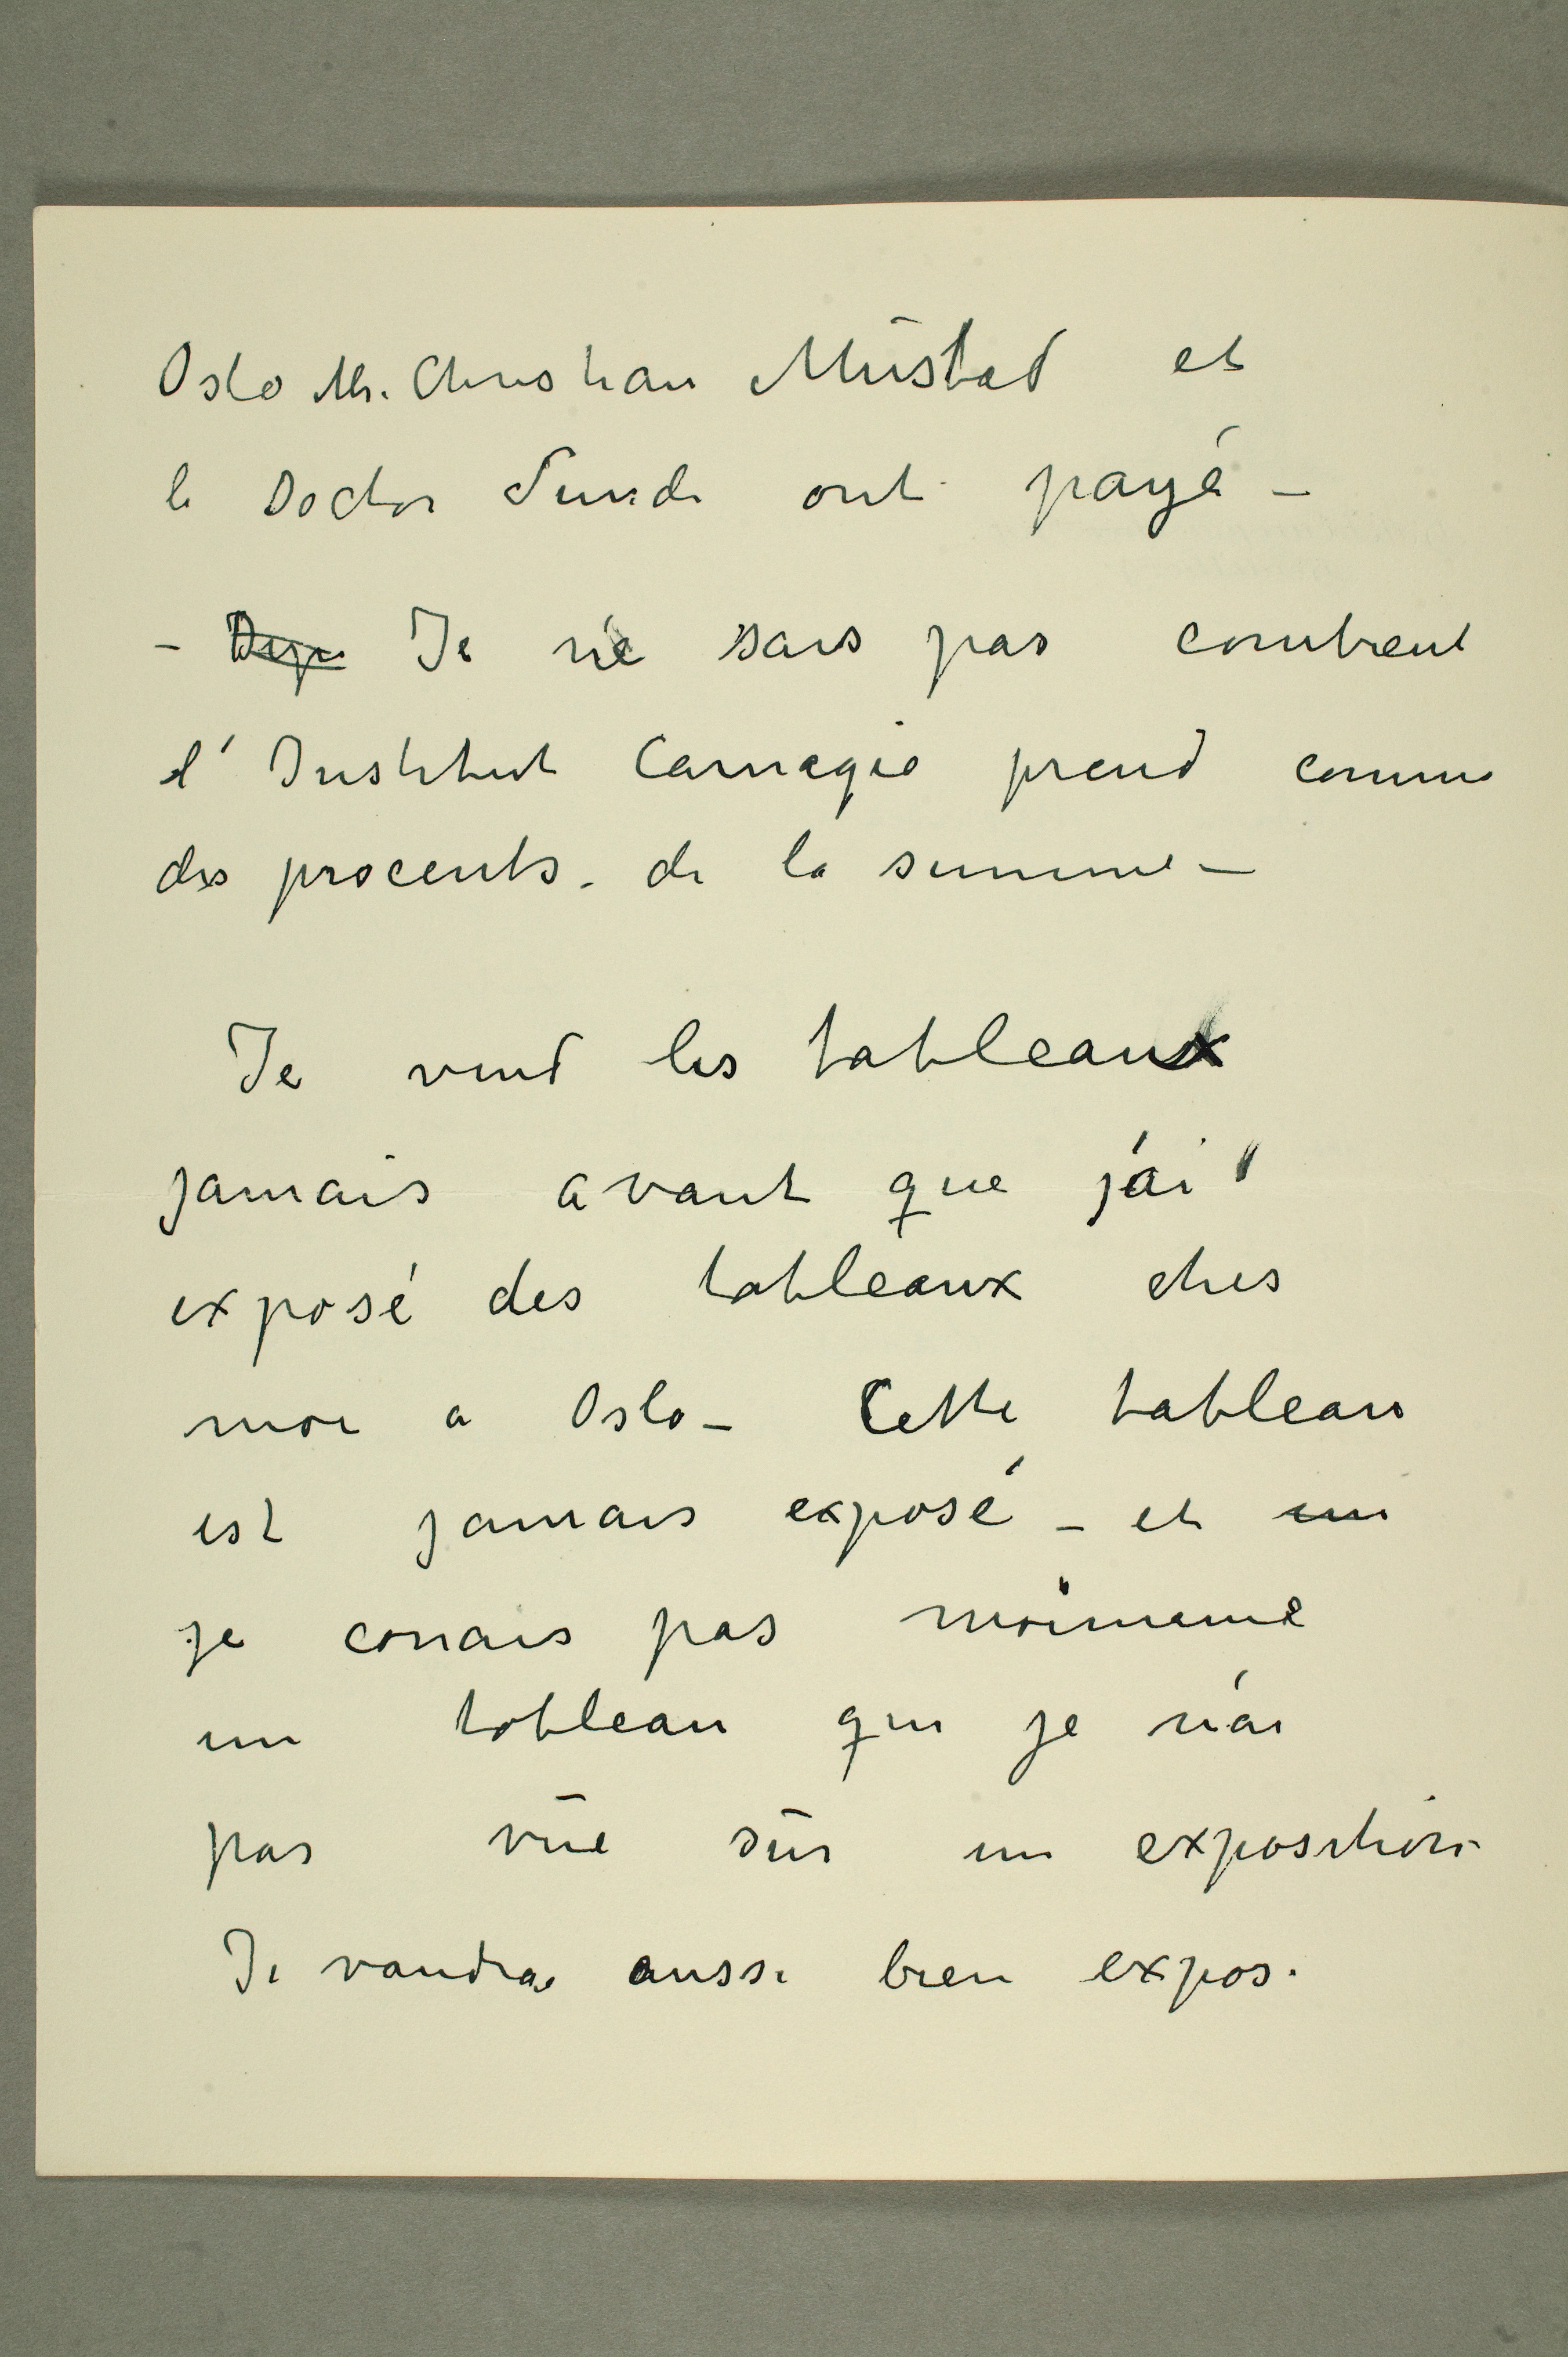 Oslo Mr. Christian Mustad et
le Doctor Sunde ont payé –
– Deje Je ne sais pas combient
l' Institut Carnegie prend comme
des procents. de la summe –
Je vend les tableaux
jamais avant que j'ai
exposé des tableaux ches
moi a Oslo – Cette tableau
est jamais exposé – et un
je conais pas moimeme
un tableau que je n'ai
pas vue sur un exposition
Je vandrai aussi bien expos.